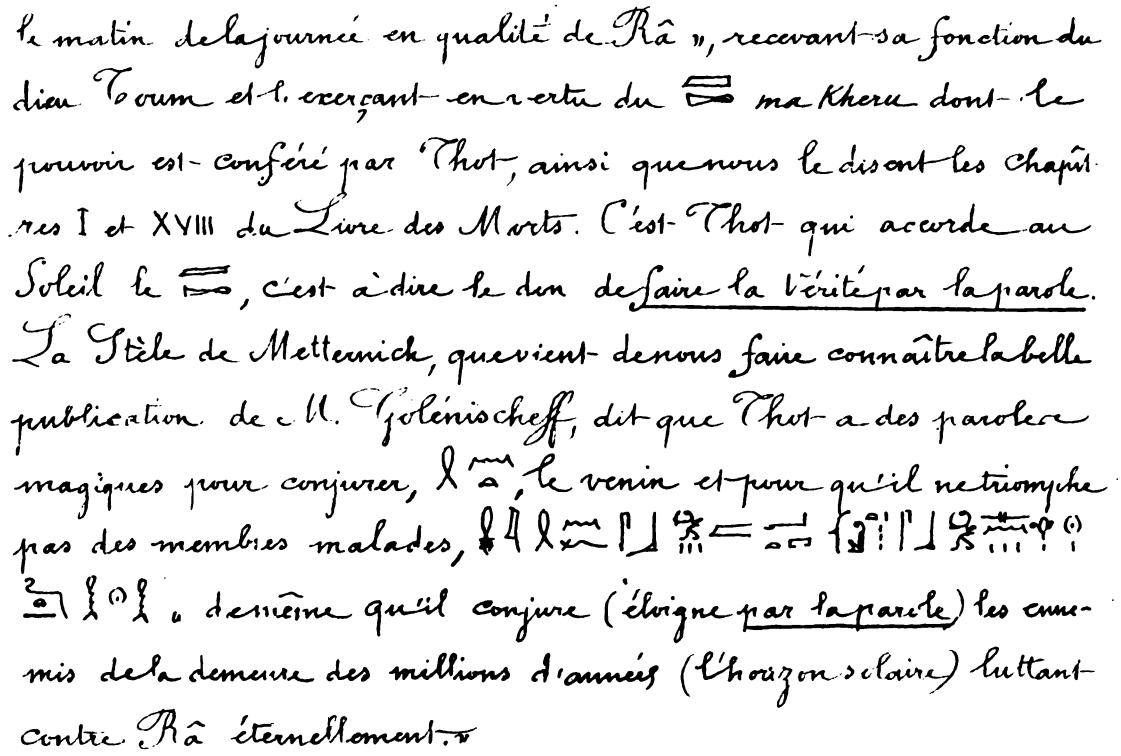 le matin de la journée en qualité de Râ », recevant sa fonction du
dieu Toum et l'exerçant en vertu du ma Kheru dont le
pouvoir est conféré par Thot, ainsi que nous le disent les chapît
res I et XVIII du Livre des Morts. C'est Thot qui accorde au
Soleil le , c'est à dire le don de faire la Vérité par la parole.
La Stèle de Metternick, que vient de nous faire connaître la belle
publication de M. Golénischeff, dit que Thot a des paroles
magiques pour conjurer, , le venin et pour qu'il ne triomphe
pas des membres malades,
" de même qu'il conjure (éloigne par la parole) les enne-
mis de la demeure des millions d'années (l'horizon solaire) luttant
contre Râ éternellement. »